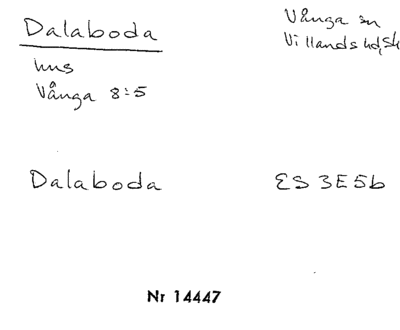 Dalaboda
hus
Vånga 8:5
Vånga sn
Villands hd, Sk
Dalaboda
ES 3E5b
Nr 14447